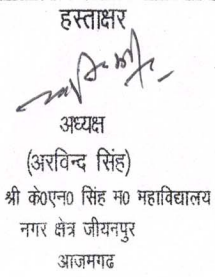 हस्ताक्षर
अध्यक्ष
(अरविन्द सिंह)
श्री के०एन० सिंह म० महाविद्यालय
नगर क्षेत्र जीयनपुर
आजमगढ